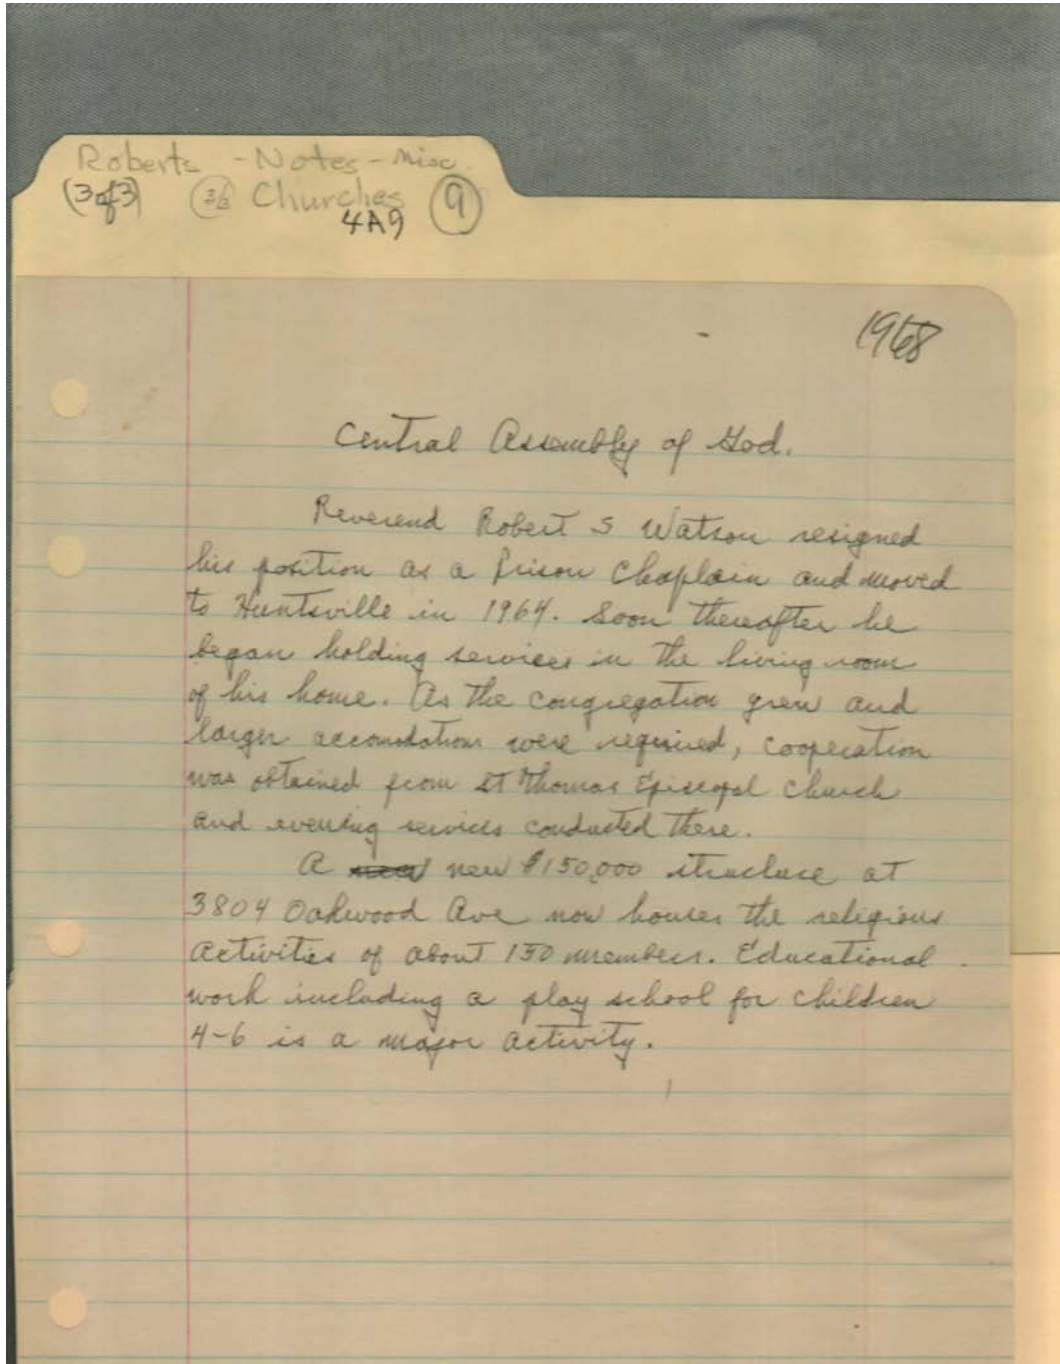 Roberts - Notes - Misc.
(3of3) 3/3 Churches 9
4A9
1968
Central Assembly of God.
Reverend Robert S Watson resigned
his position as a Prison Chaplain and moved
to Huntsville in 1964. Soon thereafter he
began holding services in the living room
of his home. As the congregation grew and
larger accomdations were required, cooperation
was obtained from St Thomas Episcopal Church
and evening services conducted there.
A new $150,000 structure at
3804 Oakwood Ave now houses the religious
activities of about 150 members. Educational
work including a play school for children
4-6 is a major activity.